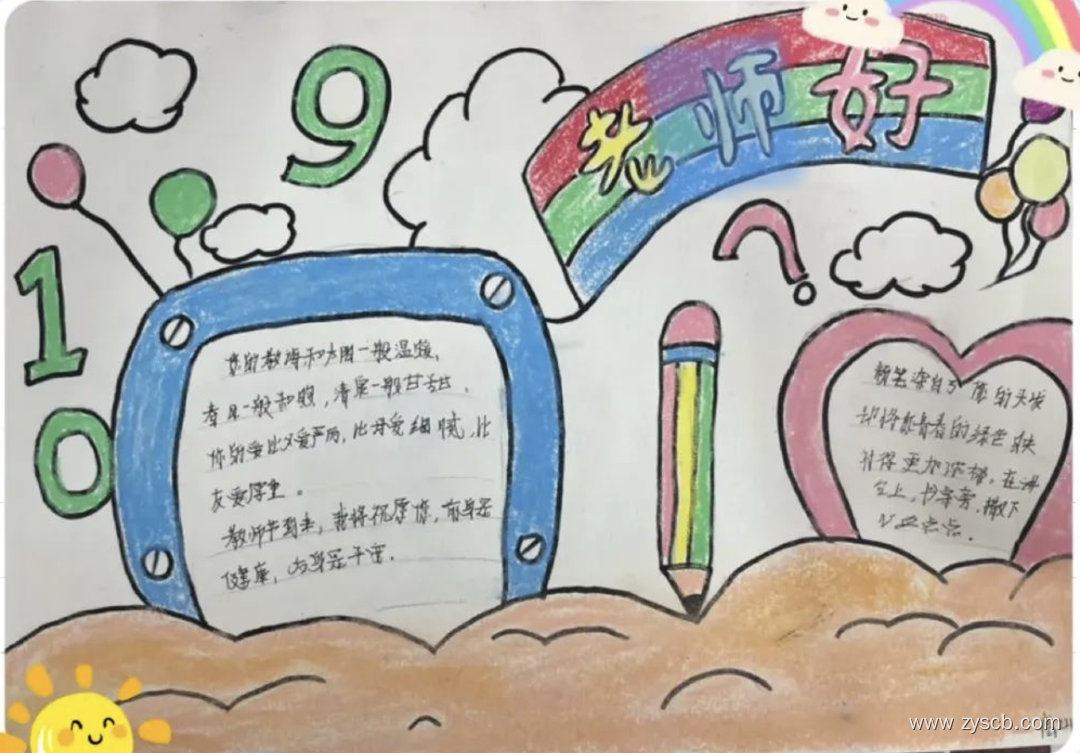 9
10
老师好
您的教诲和太阳一般温暖,
春风一般和煦,清泉一般甘甜.
你的爱比父爱严厉,比母爱细腻,比
友爱厚重。
教师节到来,我将祝愿你,前身是
健康,后身是平安.
粉笔染白了你的头发
却将你青春的绿色映
衬得更加浓郁,在讲
台上,书桌旁,撒下
心血点点.
www.zyscb.com